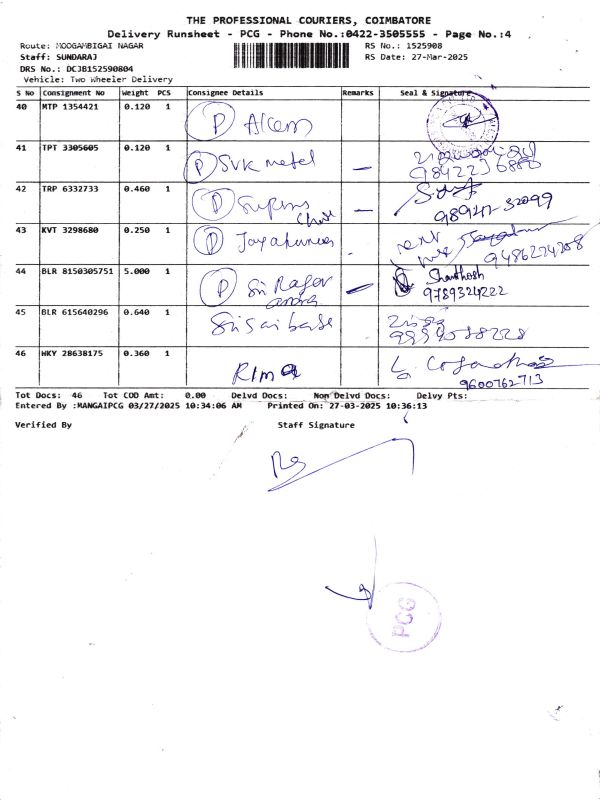 THE PROFESSIONAL COURIERS, COIMBATORE
Delivery Runsheet - PCG - Phone No.:0422-3505555 - Page No.:4
Route: MOOGAMBIGAI NAGAR RS No.: 1525908
Staff: SUNDARAJ RS Date: 27-Mar-2025
DRS No.: DCJB152590804
Vehicle: Two Wheeler Delivery
S No Consignment No Weight PCS Consignee Details Remarks Seal & Signature
40 MTP 1354421 0.120 1 P Alkem
41 TPT 3305605 0.120 1 P SVK metal —
42 TRP 6332733 0.460 1 P —
98947-32099
43 KVT 3298680 0.250 1 P
9486224208
44 BLR 8150305751 5.000 1 P Sri Ragav — Shanthosh
9789324222
45 BLR 615640296 0.640 1 Sri Sai
46 HKY 28638175 0.360 1
9600762713
Tot Docs: 46 Tot COD Amt: 0.00 Delvd Docs: Non Delvd Docs: Delvy Pts:
Entered By :MANGAIPCG 03/27/2025 10:34:06 AM Printed On: 27-03-2025 10:36:13
Verified By Staff Signature
PCG